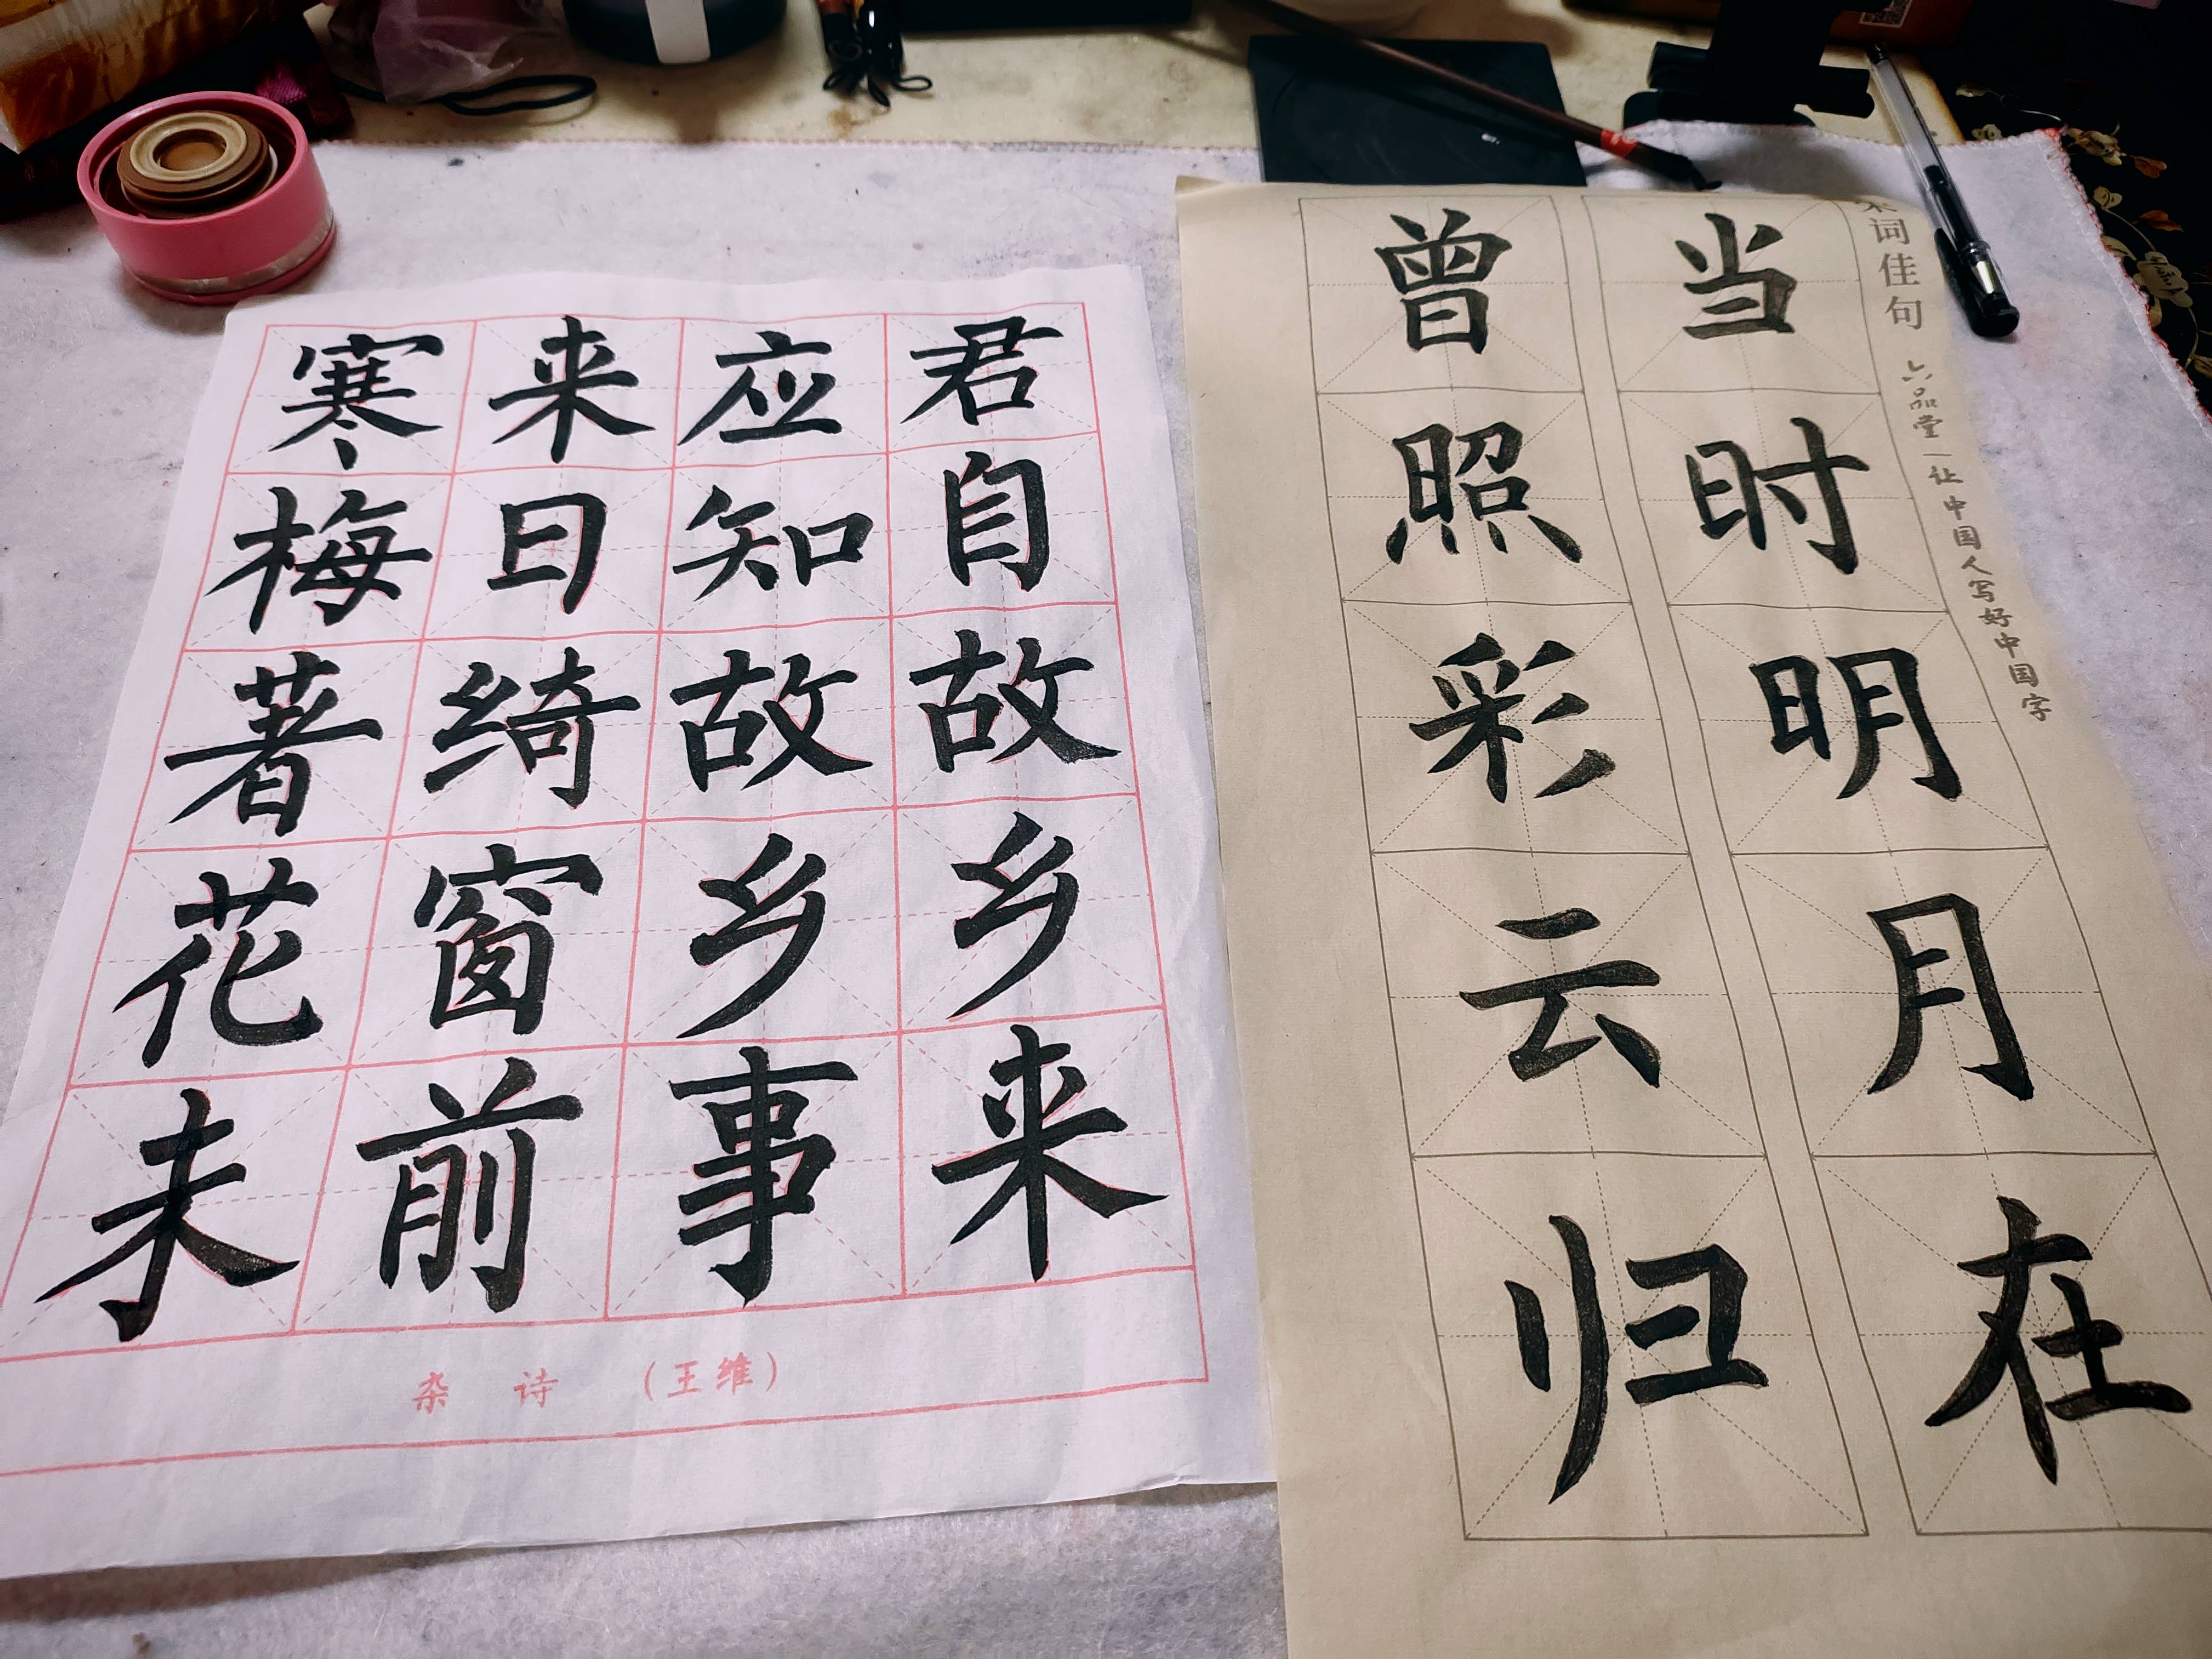 君自故乡来
应知故乡事
来日绮窗前
寒梅著花未
杂诗 (王维)
宋词佳句 六品堂—让中国人写好中国字
当时明月在
曾照彩云归